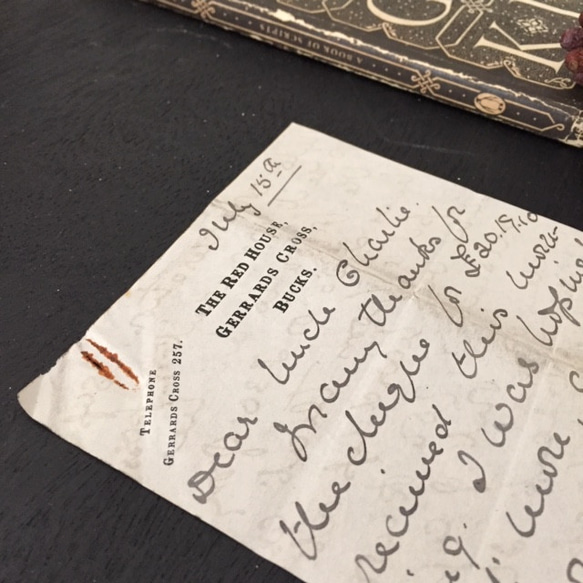 A BOOK OF SCRIPTS
July 15th
THE RED HOUSE,
GERRARDS CROSS,
BUCKS.
TELEPHONE
GERRARDS CROSS 257.
Dear Uncle Charlie.
Many thanks for
the cheque for £20.19.10
received this morn-
g. I was hoping
more